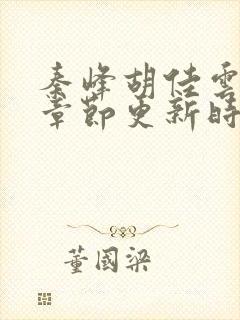 秦峰胡佳雲
章節更新時
董國梁